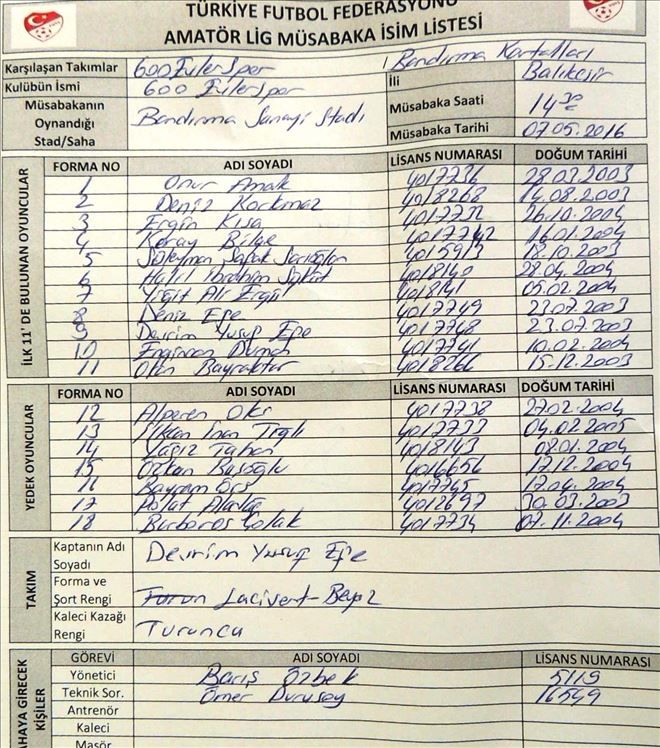 TÜRKİYE FUTBOL FEDERASYONU
AMATÖR LİG MÜSABAKA İSİM LİSTESİ
Karşılaşan Takımlar 600 Evlerspor / Bandırma Kartalları
Kulübün İsmi 600 Evlerspor İli Balıkesir
Müsabakanın Oynandığı Stad/Saha Bandırma Sanayi Stadı Müsabaka Saati 14 30
Müsabaka Tarihi 07.05.2016
İLK 11' DE BULUNAN OYUNCULAR
FORMA NO ADI SOYADI LİSANS NUMARASI DOĞUM TARİHİ
1 Onur 4017736 28.03.2003
2 Deniz Korkmaz 4018268 14.08.2003
3 Ergin Kısa 26.10.2004
4 Koray Bilge 4017742 14.01.2004
5 Süleyman Şafak 4015913 18.10.2003
6 Halil İbrahim 4018140 28.04.2004
7 Yiğit Ali 4018141 05.02.2004
8 Deniz Efe 4017749 23.07.2003
9 Devrim Yusuf Efe 4017748 23.07.2003
10 Duman 4017741 10.02.2004
11 Bayraktar 4018266 15.12.2003
YEDEK OYUNCULAR
FORMA NO ADI SOYADI LİSANS NUMARASI DOĞUM TARİHİ
12 Alperen 4017738 27.02.2004
13 4017737 04.02.2005
14 Yağız 4018143 08.01.2004
15 4016656 17.12.2004
Bayram 4017745 17.04.2004
17 Polat 4012697 30.03.2003
18 Barbaros Çolak 4017734 07.11.2004
TAKIM
Kaptanın Adı Soyadı Devrim Yusuf Efe
Forma ve Şort Rengi Lacivert-Beyaz
Kaleci Kazağı Rengi Turuncu
SAHAYA GİRECEK KİŞİLER
GÖREVİ ADI SOYADI LİSANS NUMARASI
Yönetici Barış Özbek 5119
Teknik Sor. Ömer Durusoy 16549
Antrenör
Kaleci
Masör